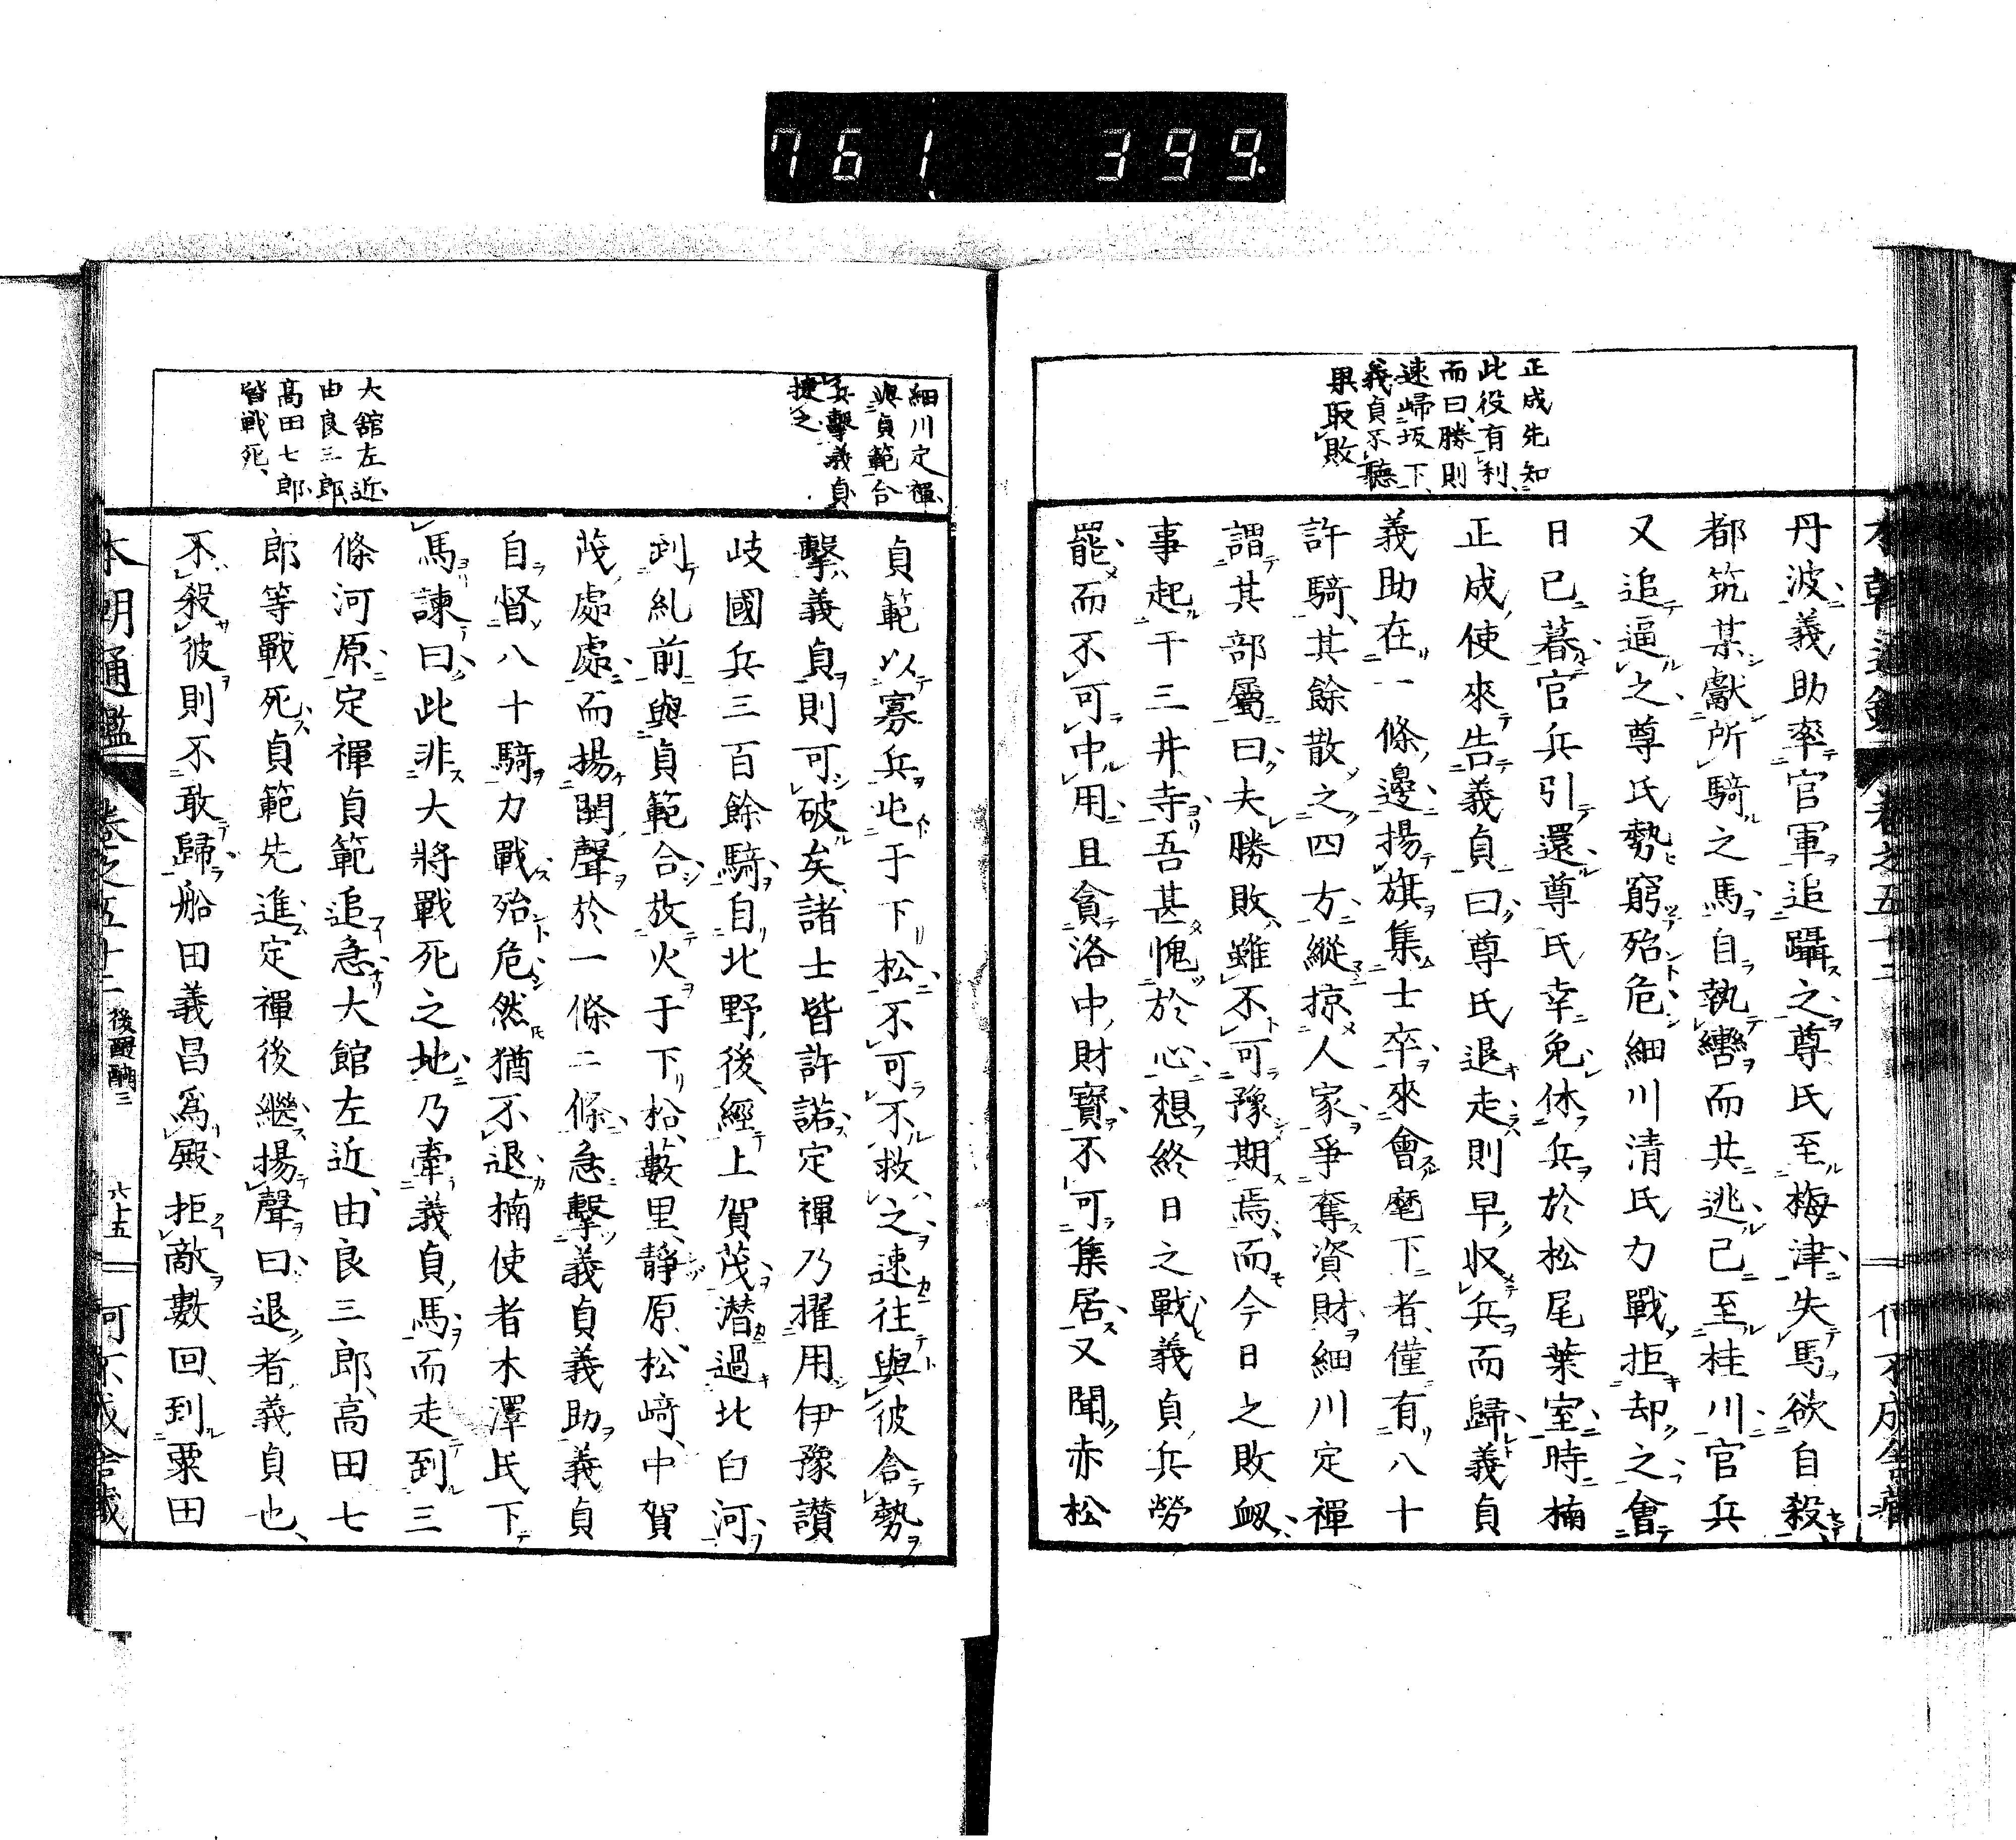 761 399.
正成先知
此役有利
而曰勝則
速歸坂下
義貞不聽
果取敗
丹波義助率官軍追躡之尊氏至梅津失馬欲自殺
都筑某獻所騎之馬自執轡而共逃已至桂川官兵
又追逼之尊氏勢窮殆危細川清氏力戰拒却之會
日已暮官兵引還尊氏幸免休兵於松尾葉室時楠
正成使來告義貞曰尊氏退走則早收兵而歸義貞
義助在一條邊揚旗集士卒來會麾下者僅有八十
許騎其餘散之四方縱掠人家爭奪資財細川定禪
謂其部屬曰夫勝敗雖不可豫期焉而今日之敗衂
事起于三井寺吾甚愧於心想終日之戰義貞兵勞
罷而不可中用且貪洛中財寶不可集居又聞赤松
細川定禪
與貞範合
兵擊義貞
捷之
大舘左近
由良三郎
髙田七郎
皆戰死
貞範以寡兵屯于下松不可不救之速往與彼合勢
擊義貞則可破矣諸士皆許諾定禪乃擢用伊豫讃
岐國兵三百餘騎自北野後經上賀茂潛過北白河
到糺前與貞範合放火于下松藪里靜原松﨑中賀
茂處處而揚鬨聲於一條二條急擊義貞義助義貞
自督八十騎力戰殆危然猶不退楠使者木澤氏下
馬諫曰此非大將戰死之地乃牽義貞馬而走到三
條河原定禪貞範追急大館左近由良三郎高田七
郎等戰死貞範先進定禪後繼揚聲曰退者義貞也
不殺彼則不敢歸船田義昌爲殿拒敵數回到粟田
本朝通鑑 卷之五十二 後醍醐三 六十五